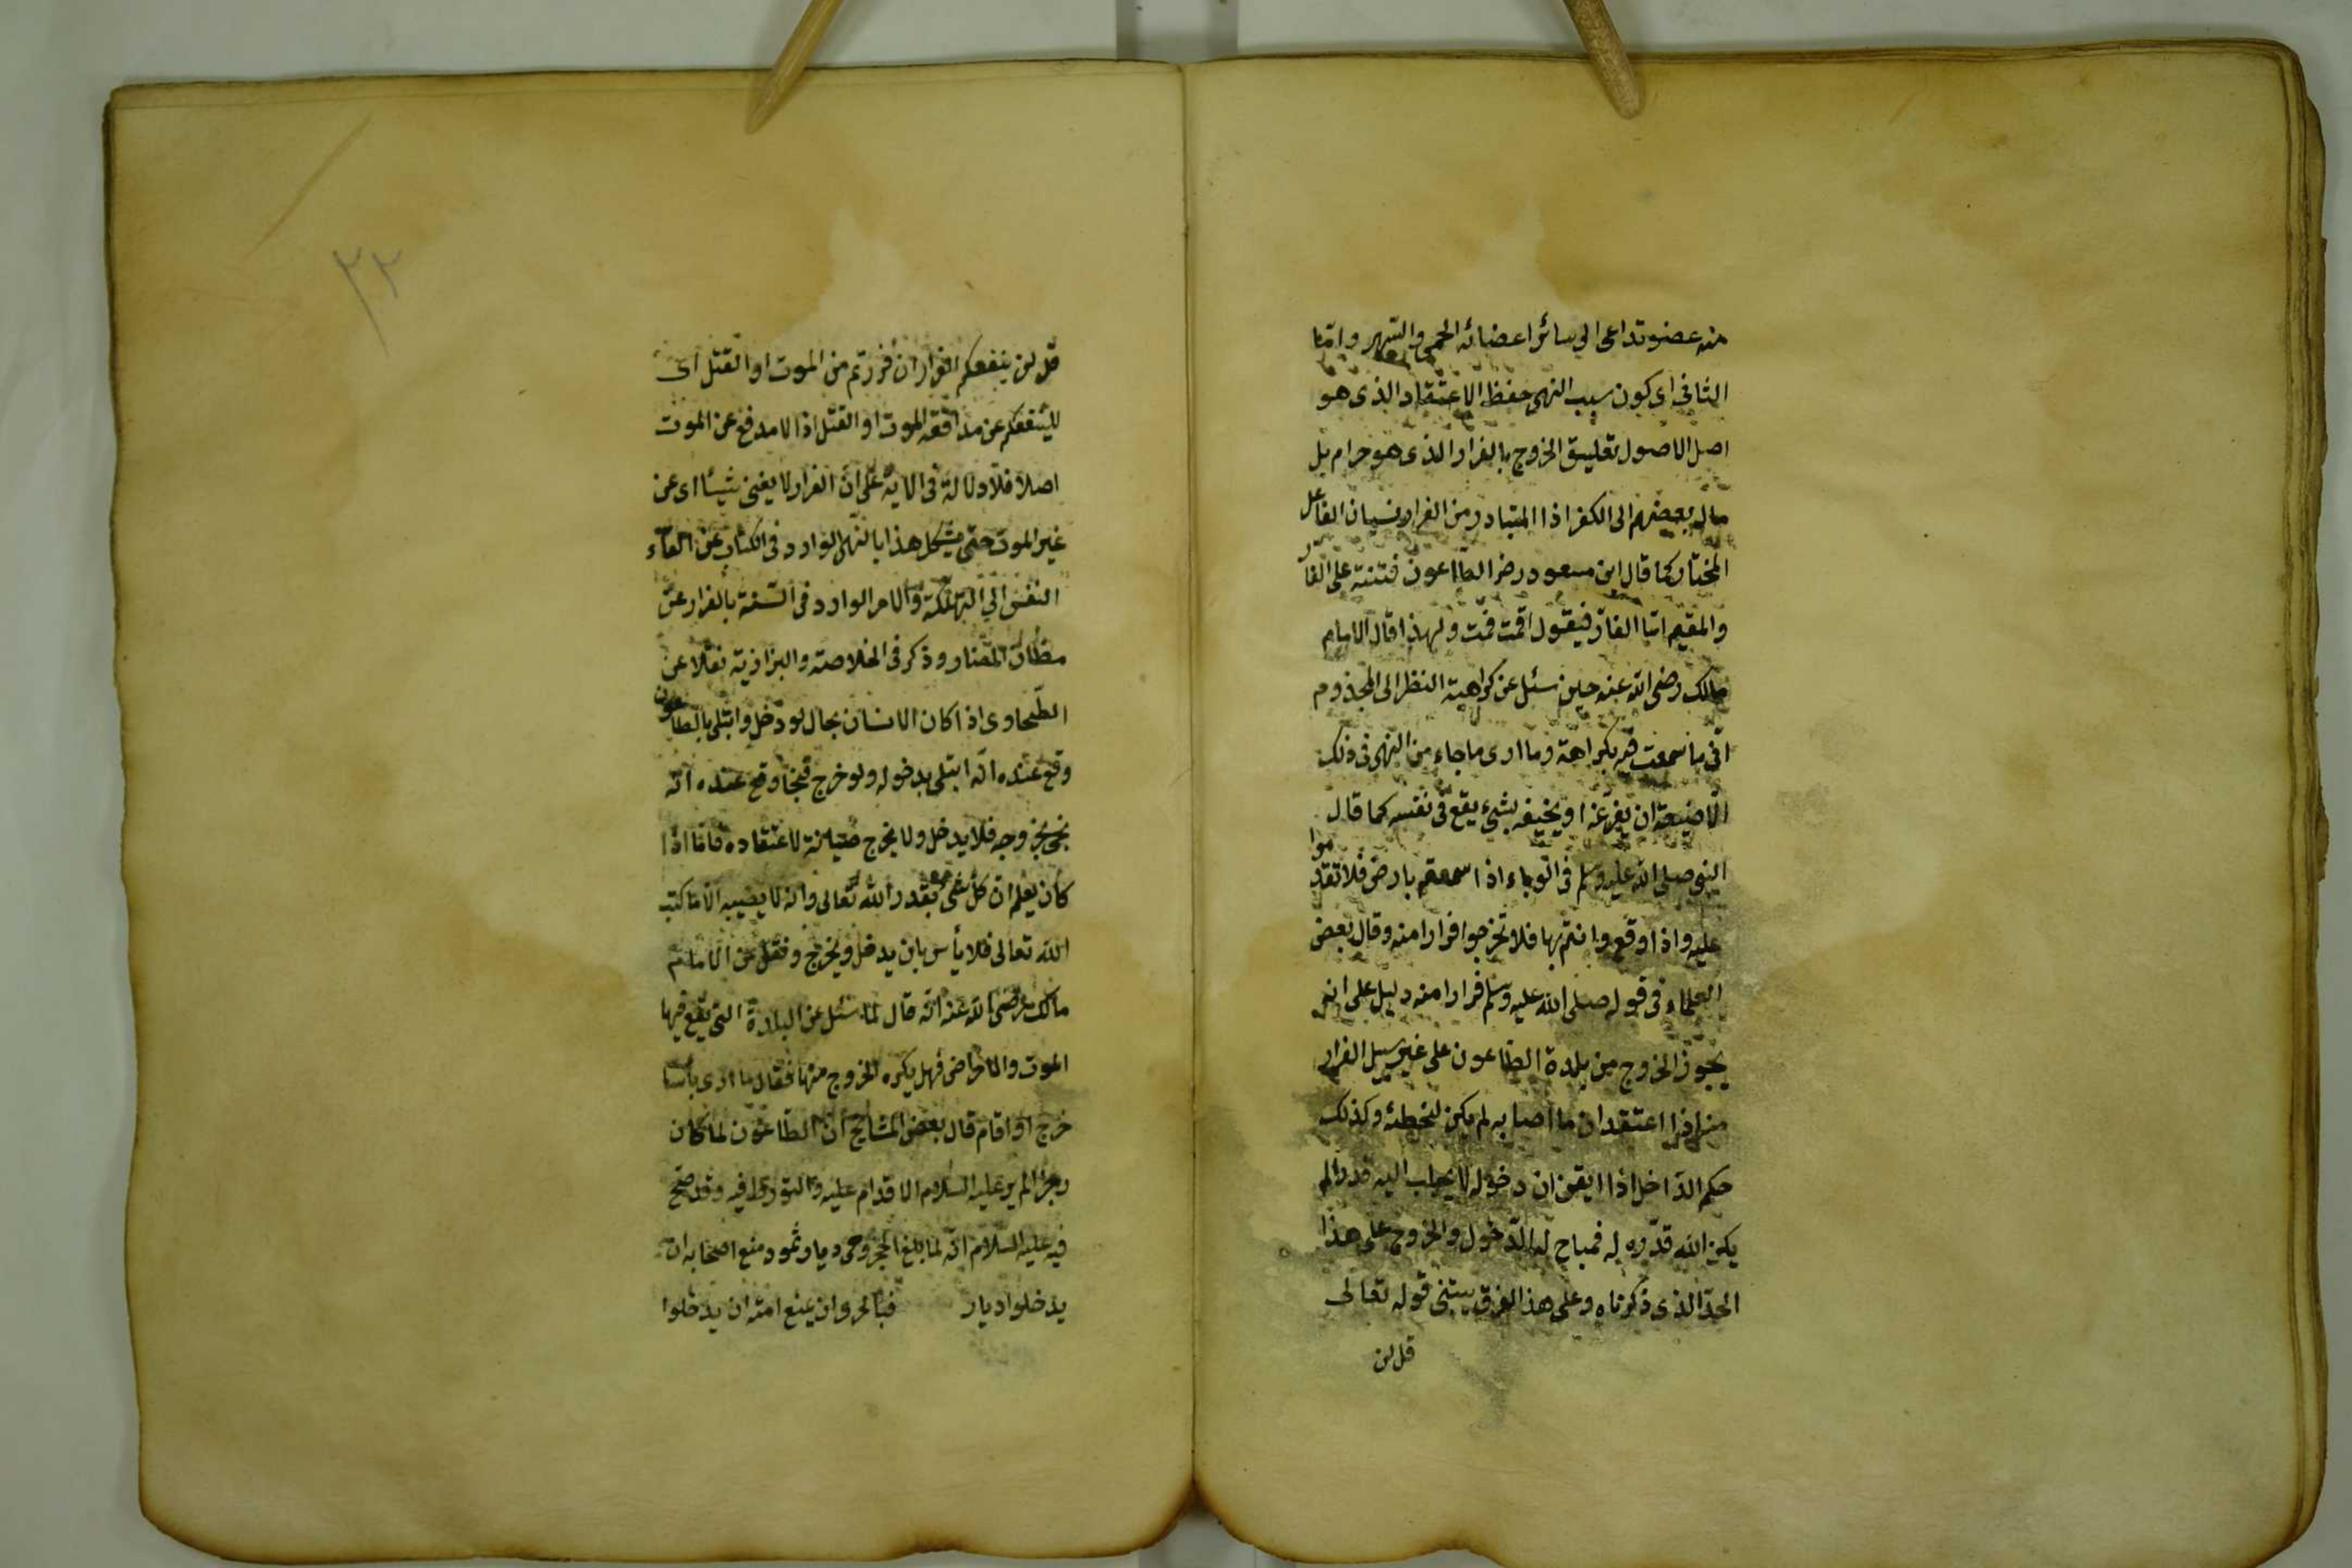 منه عضو تداعى الى سائر اعضائه الحمى والسهر واما
الثانى اى كون سبب النهى حفظ الاعتقاد الذى هو
اصل الاصول تعليق الخروج بالفرار الذى هو حرام بل
مال بعضهم الى الكفر اذا المتبادر من الفرار نسيان الفاعل
المختار كما قال ابن مسعود رضر الطاعون فتنة على الفار
والمقيم اما الفار فيقول اقمت فمت ولهذا قال الامام
مالك رضى الله عنه حين سئل عن كراهية النظر الى المجذوم
انى ما سمعت فيه بكراهة وما ارى ما جاء من النهى فى ذلك
الا خيفة ان يفزعه او يخيفه بشىء يقع فى نفسه كما قال
النبى صلى الله عليه وسلم فى الوباء اذا سمعتم بارض فلا تقدموا
عليه واذا وقع وانتم بها فلا تخرجوا فرارا منه وقال بعض
العلماء فى قوله صلى الله عليه وسلم فرارا منه دليل على انه
يجوز الخروج من بلدة الطاعون على غير سبيل الفرار
منه اذا اعتقد ان ما اصابه لم يكن ليخطئه وكذلك
حكم الداخل اذا ايقن ان دخوله لا يجلب اليه قدرا لم
يكن الله قدره له فمباح له الدخول والخروج على هذا
الحد الذى ذكرناه وعلى هذا الفرق يبتنى قوله تعالى
قل لن
٣٢
قل لن ينفعكم الفرار ان فررتم من الموت او القتل اى
لا ينفعكم عن مدافعة الموت او القتل اذ لا مدفع عن الموت
اصلا فلا دلالة فى الاية على ان الفرار لا يغنى شيئا اى عن
غير الموت حتى يشكل هذا بالنهى الوارد فى الكتاب عن القاء
النفس الى التهلكة والامر الوارد فى السنة بالفرار عن
مظان المضار وذكر فى الخلاصة والبزازية نقلا عن
الطحاوى اذا كان الانسان بحال لو دخل وابتلى بالطاعون
وقع عنده انه ابتلى بدخوله ولو خرج فنجا وقع عنده انه
نجى بخروجه فلا يدخل ولا يخرج صيانة لاعتقاده فاما اذا
كان يعلم ان كل شىء بقدر الله تعالى وانه لا يصيبه الا ما كتب
الله تعالى فلا بأس بان يدخل ويخرج ونقل عن الامام
مالك رضى الله عنه انه قال لما سئل عن البلدة التى يقع فيها
الموت والامراض فهل يكره الخروج منها فقال ما ارى بأسا
خرج او اقام قال بعض المشايخ ان الطاعون لما كان
رجزا لم ير عليه السلام الاقدام عليه والتورط فيه وقد صح
فيه عليه السلام انه لما بلغ الحجر وهى ديار ثمود منع اصحابه ان
يدخلوا ديار فبالحرى ان يمنع امته ان يدخلوا